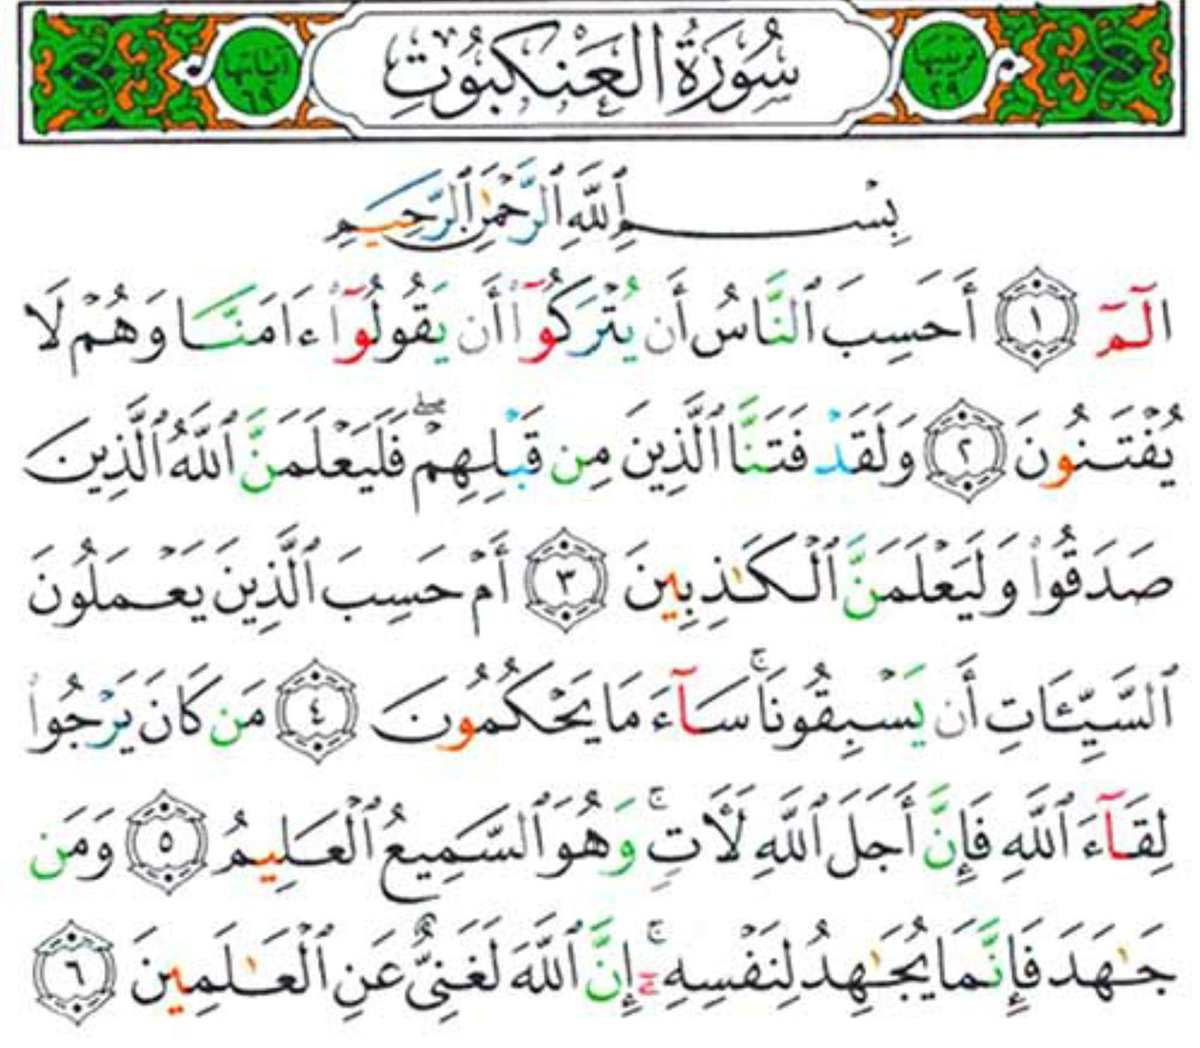 ترتيبها ٢٩
سُورَةُ العَنكَبُوتِ
آياتها ٦٩
بِسْمِ ٱللَّهِ ٱلرَّحْمَٰنِ ٱلرَّحِيمِ
الٓمٓ ١ أَحَسِبَ ٱلنَّاسُ أَن يُتْرَكُوٓا۟ أَن يَقُولُوٓا۟ ءَامَنَّا وَهُمْ لَا
يُفْتَنُونَ ٢ وَلَقَدْ فَتَنَّا ٱلَّذِينَ مِن قَبْلِهِمْ ۖ فَلَيَعْلَمَنَّ ٱللَّهُ ٱلَّذِينَ
صَدَقُوا۟ وَلَيَعْلَمَنَّ ٱلْكَـٰذِبِينَ ٣ أَمْ حَسِبَ ٱلَّذِينَ يَعْمَلُونَ
ٱلسَّيِّـَٔاتِ أَن يَسْبِقُونَا ۚ سَآءَ مَا يَحْكُمُونَ ٤ مَن كَانَ يَرْجُوا۟
لِقَآءَ ٱللَّهِ فَإِنَّ أَجَلَ ٱللَّهِ لَـَٔاتٍ ۚ وَهُوَ ٱلسَّمِيعُ ٱلْعَلِيمُ ٥ وَمَن
جَـٰهَدَ فَإِنَّمَا يُجَـٰهِدُ لِنَفْسِهِۦٓ ۚ إِنَّ ٱللَّهَ لَغَنِىٌّ عَنِ ٱلْعَـٰلَمِينَ ٦